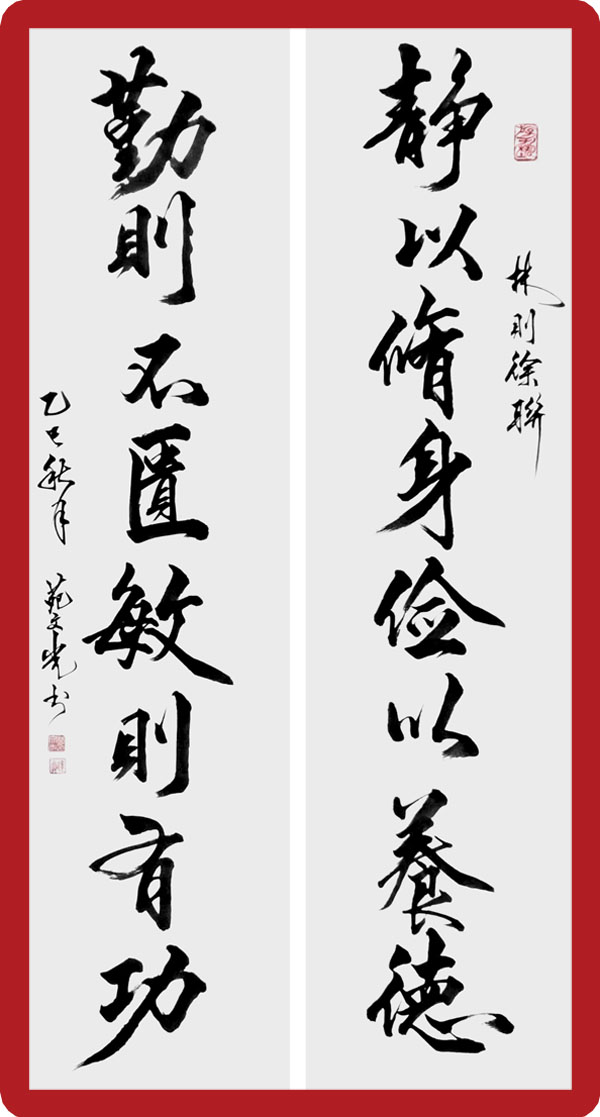 林則徐聯
静以脩身俭以養德
勤則不匱敏則有功
乙巳秋月 苑文光书